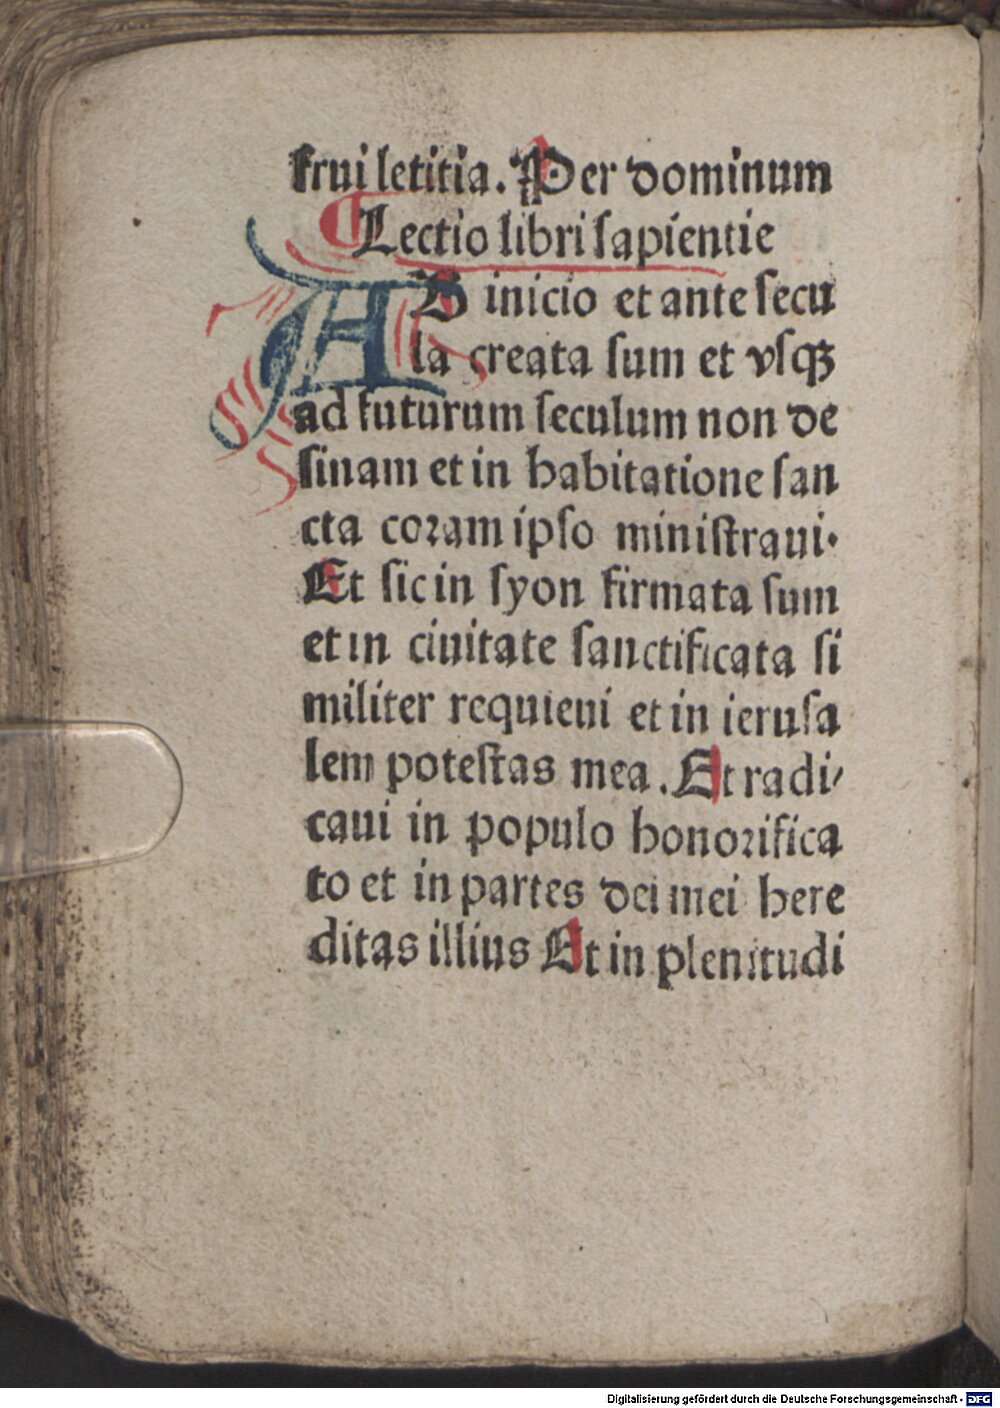 frui letitia. Per dominum
Lectio libri sapientie
AB inicio et ante secu
la creata sum et vsqꝫ
ad futurum seculum non de
sinam et in habitatione san
cta coram ipso ministraui.
Et sic in syon firmata sum
et in ciuitate sanctificata si
militer requieui et in ierusa
lem potestas mea. Et radi/
caui in populo honorifica
to et in partes dei mei here
ditas illius Et in plenitudi
Digitalisierung gefördert durch die Deutsche Forschungsgemeinschaft - DFG